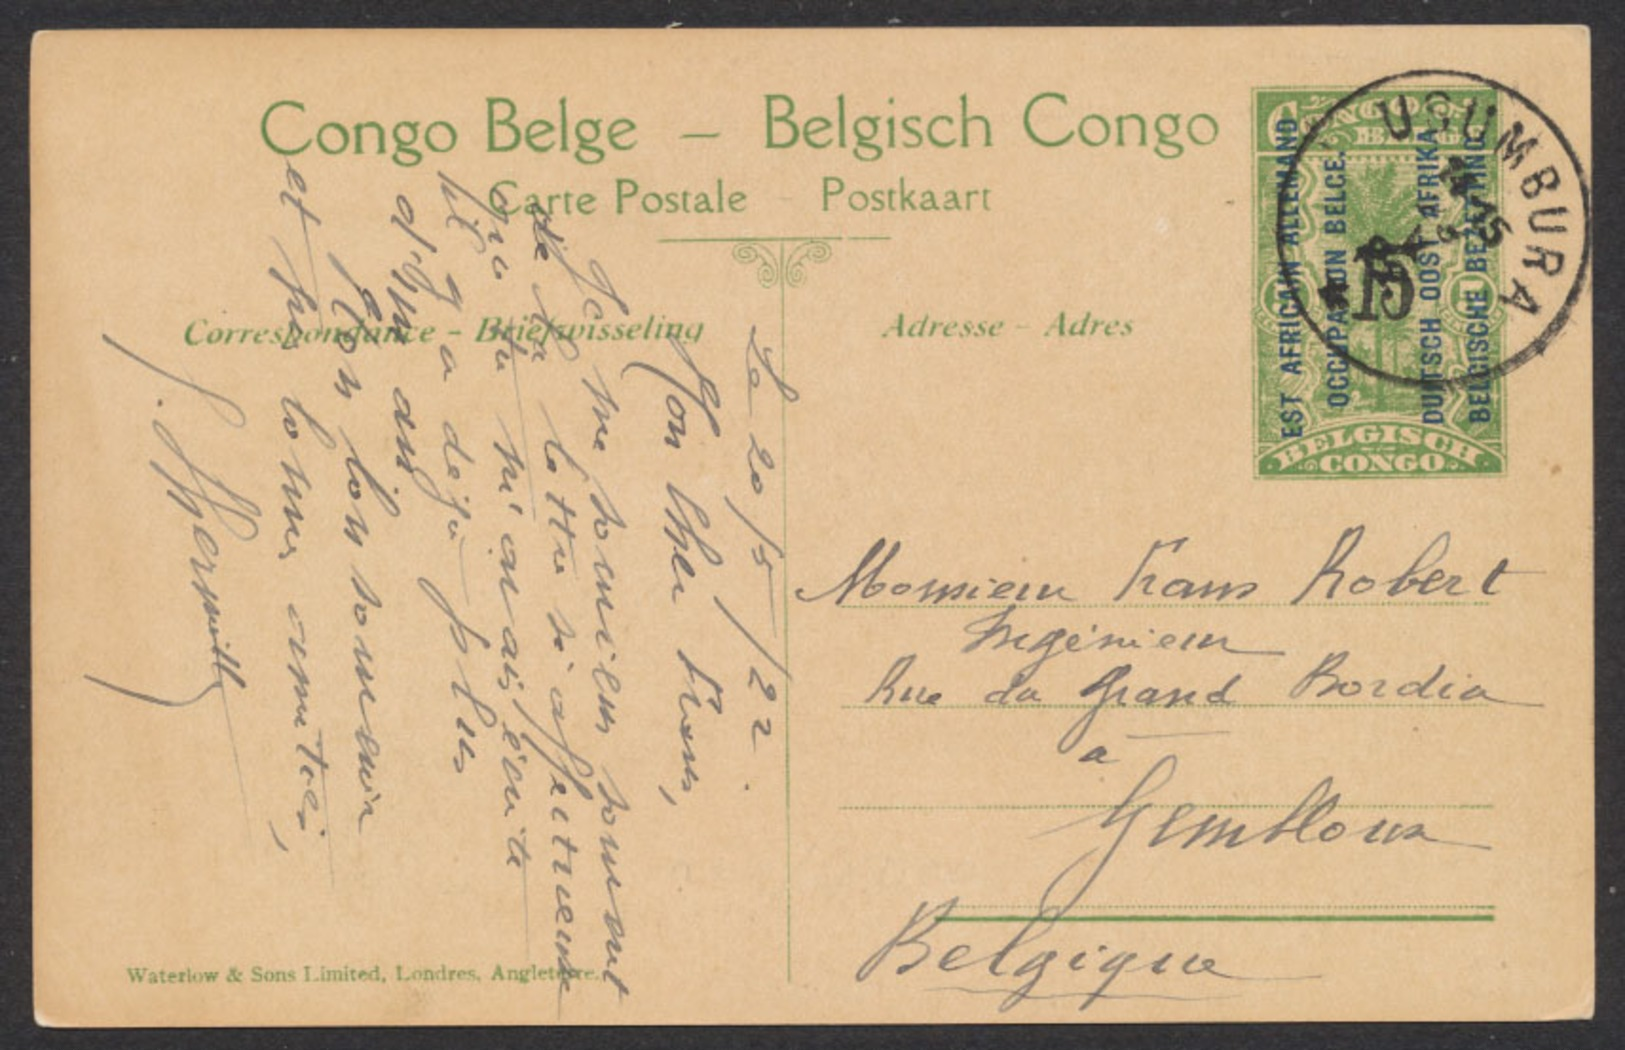 Congo Belge – Belgisch Congo
Carte Postale Postkaart
Correspondance – Briefwisseling
Adresse – Adres
CONGO BELGE
EST AFRICAIN ALLEMAND
OCCUPATION BELGE.
DUITSCH OOST AFRIKA
BELGISCHE BEZETTING.
15
BELGISCH CONGO
USUMBURA
Le 20/5/22.
Mon cher Frans,
Je me souviens souvent
de la lettre si affectueuse
que tu m'avais écrite
il y a déjà plus
d'un an
Bon bon souvenir
et tous amitiés,
Monsieur Frans Robert
Ingénieur
Rue du Grand
à
Gembloux
Belgique
Waterlow & Sons Limited, Londres, Angleterre.